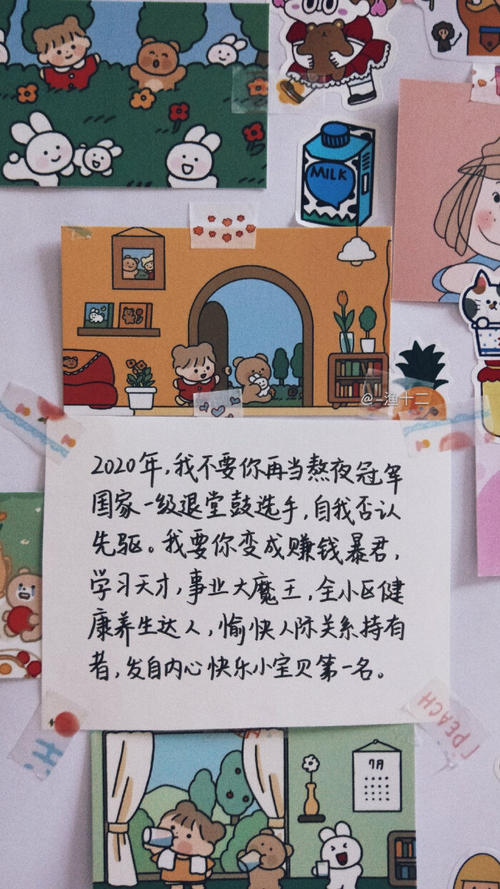 MILK
@一渔十二
2020年，我不要你再当熬夜冠军
国家一级退堂鼓选手，自我否认
先驱。我要你变成赚钱暴君，
学习天才，事业大魔王，全小区健
康养生达人，愉快人际关系持有
者，发自内心快乐小宝贝第一名。
PEACH
7月